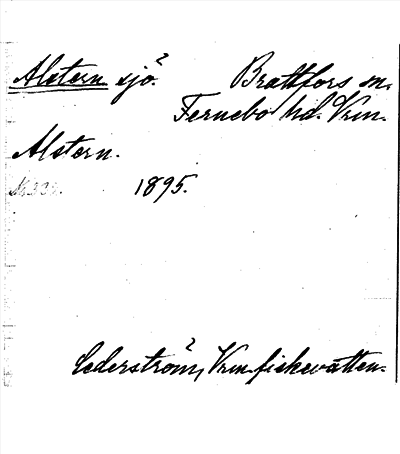 Alstern sjö. Brattfors sn.
Fernebo hd. Vrm.
Alstern.
1895.
Cederström, Vrm fiskevatten.